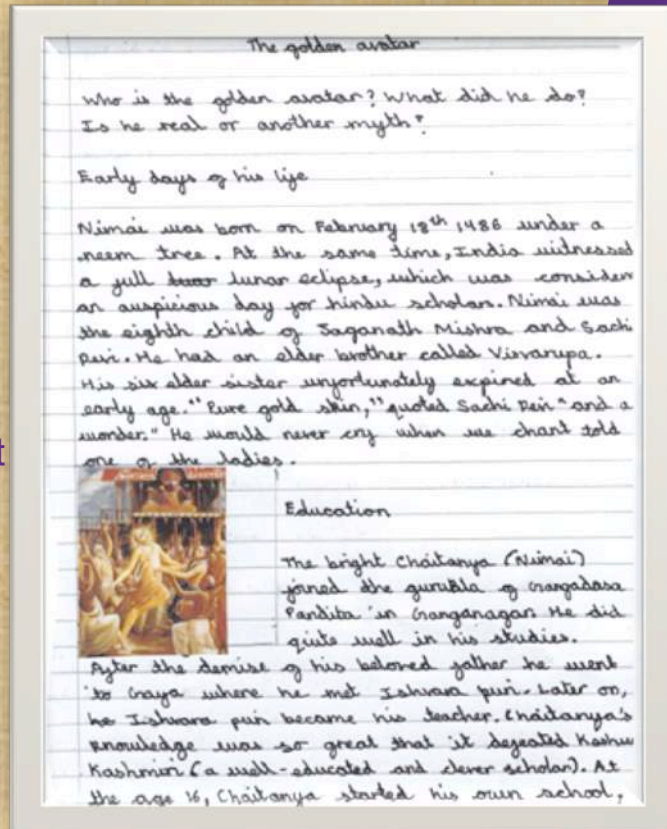 The golden avatar
Who is the golden avatar? What did he do?
Is he real or another myth?
Early days of his life
Nimai was born on February 18th 1486 under a
neem tree. At the same time, India witnessed
a full lunar eclipse, which was consider
an auspicious day for hindu scholars. Nimai was
the eighth child of Jaganath Mishra and Sachi
Devi. He had an elder brother called Visvarupa.
His six elder sister unfortunately expired at an
early age. "Pure gold skin," quoted Sachi Devi "and a
wonder." He would never cry when we chant told
one of the ladies.
t
Education
The bright Chaitanya (Nimai)
joined the of Gangadasa
Pandita in Ganganagar. He did
quite well in his studies.
After the demise of his beloved father he went
to Gaya where he met Ishvara puri. Later on,
he Ishvara puri became his teacher. Chaitanya's
knowledge was so great that it defeated
Kashmiri (a well-educated and clever scholar). At
the age 16, Chaitanya started his own school,